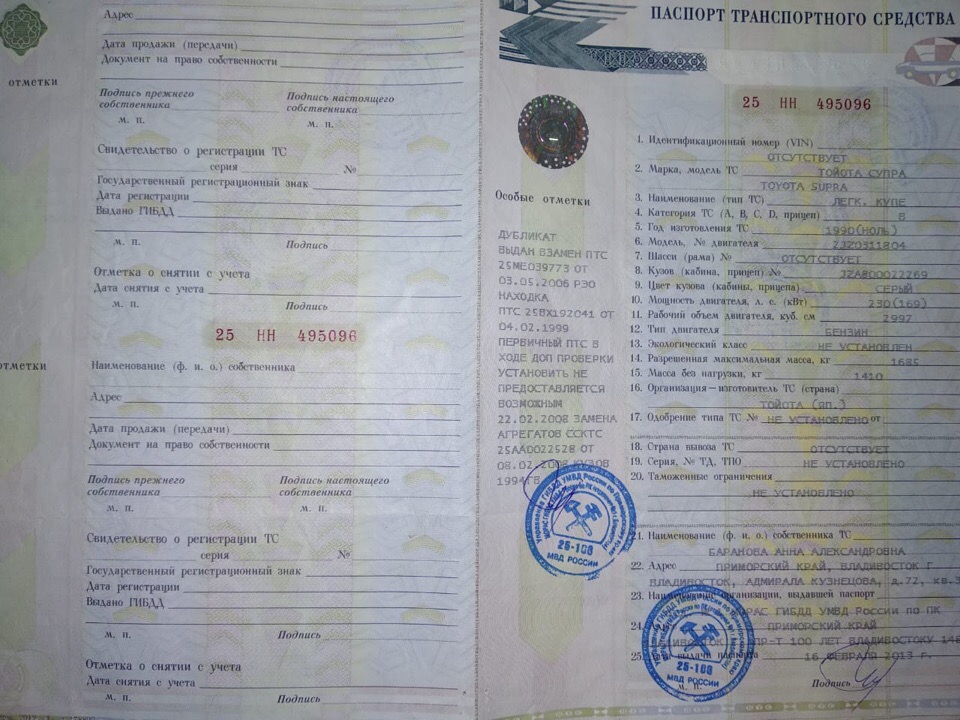 отметки
Адрес
Дата продажи (передачи)
Документ на право собственности
Подпись прежнего собственника
Подпись настоящего собственника
м. п.
м. п.
Свидетельство о регистрации ТС
серия №
Государственный регистрационный знак
Дата регистрации
Выдано ГИБДД
м. п. Подпись
Отметка о снятии с учета
Дата снятия с учета
м. п. Подпись
25 НН 495096
отметки
Наименование (ф. и. о.) собственника
Адрес
Дата продажи (передачи)
Документ на право собственности
Подпись прежнего собственника
Подпись настоящего собственника
м. п.
м. п.
Свидетельство о регистрации ТС
серия №
Государственный регистрационный знак
Дата регистрации
Выдано ГИБДД
м. п. Подпись
Отметка о снятии с учета
Дата снятия с учета
м. п. Подпись
ПАСПОРТ ТРАНСПОРТНОГО СРЕДСТВА
25 НН 495096
Особые отметки
ДУБЛИКАТ
ВЫДАН ВЗАМЕН ПТС
25МЕ039773 ОТ
03.05.2006 РЭО
НАХОДКА
ПТС 25ВХ192041 ОТ
04.02.1999
ПЕРВИЧНЫЙ ПТС В
ХОДЕ ДОП ПРОВЕРКИ
УСТАНОВИТЬ НЕ
ПРЕДОСТАВЛЯЕТСЯ
ВОЗМОЖНЫМ
22.02.2008 ЗАМЕНА
АГРЕГАТОВ ССКТС
25АА0022528 ОТ
08.02.2008 КУЗОВ
1994ГВ
1. Идентификационный номер (VIN)
ОТСУТСТВУЕТ
2. Марка, модель ТС ТОЙОТА СУПРА
TOYOTA SUPRA
3. Наименование (тип ТС) ЛЕГК. КУПЕ
4. Категория ТС (А, В, С, D, прицеп) В
5. Год изготовления ТС 1990(НОЛЬ)
6. Модель, № двигателя 2JZ0311804
7. Шасси (рама) № ОТСУТСТВУЕТ
8. Кузов (кабина, прицеп) № JZA800022269
9. Цвет кузова (кабины, прицепа) СЕРЫЙ
10. Мощность двигателя, л. с. (кВт) 230(169)
11. Рабочий объем двигателя, куб. см 2997
12. Тип двигателя БЕНЗИН
13. Экологический класс НЕ УСТАНОВЛЕН
14. Разрешенная максимальная масса, кг 1685
15. Масса без нагрузки, кг 1410
16. Организация–изготовитель ТС (страна)
ТОЙОТА (ЯП.)
17. Одобрение типа ТС № НЕ УСТАНОВЛЕНО от
18. Страна вывоза ТС ОТСУТСТВУЕТ
19. Серия, № ТД, ТПО НЕ УСТАНОВЛЕНО
20. Таможенные ограничения
НЕ УСТАНОВЛЕНО
21. Наименование (ф. и. о.) собственника ТС
БАРАНОВА АННА АЛЕКСАНДРОВНА
22. Адрес ПРИМОРСКИЙ КРАЙ, ВЛАДИВОСТОК Г
ВЛАДИВОСТОК, АДМИРАЛА КУЗНЕЦОВА, д.72, кв.3
23. Наименование организации, выдавшей паспорт
ОРАС ГИБДД УМВД России по ПК
24. ПРИМОРСКИЙ КРАЙ
ПР-Т 100 ЛЕТ ВЛАДИВОСТОКУ 148
25. Дата выдачи паспорта 16 ФЕВРАЛЯ 2013 г.
м. п. Подпись
Управление ГИБДД УМВД России по Приморскому краю
25-100
МВД РОССИИ
25-100
МВД РОССИИ